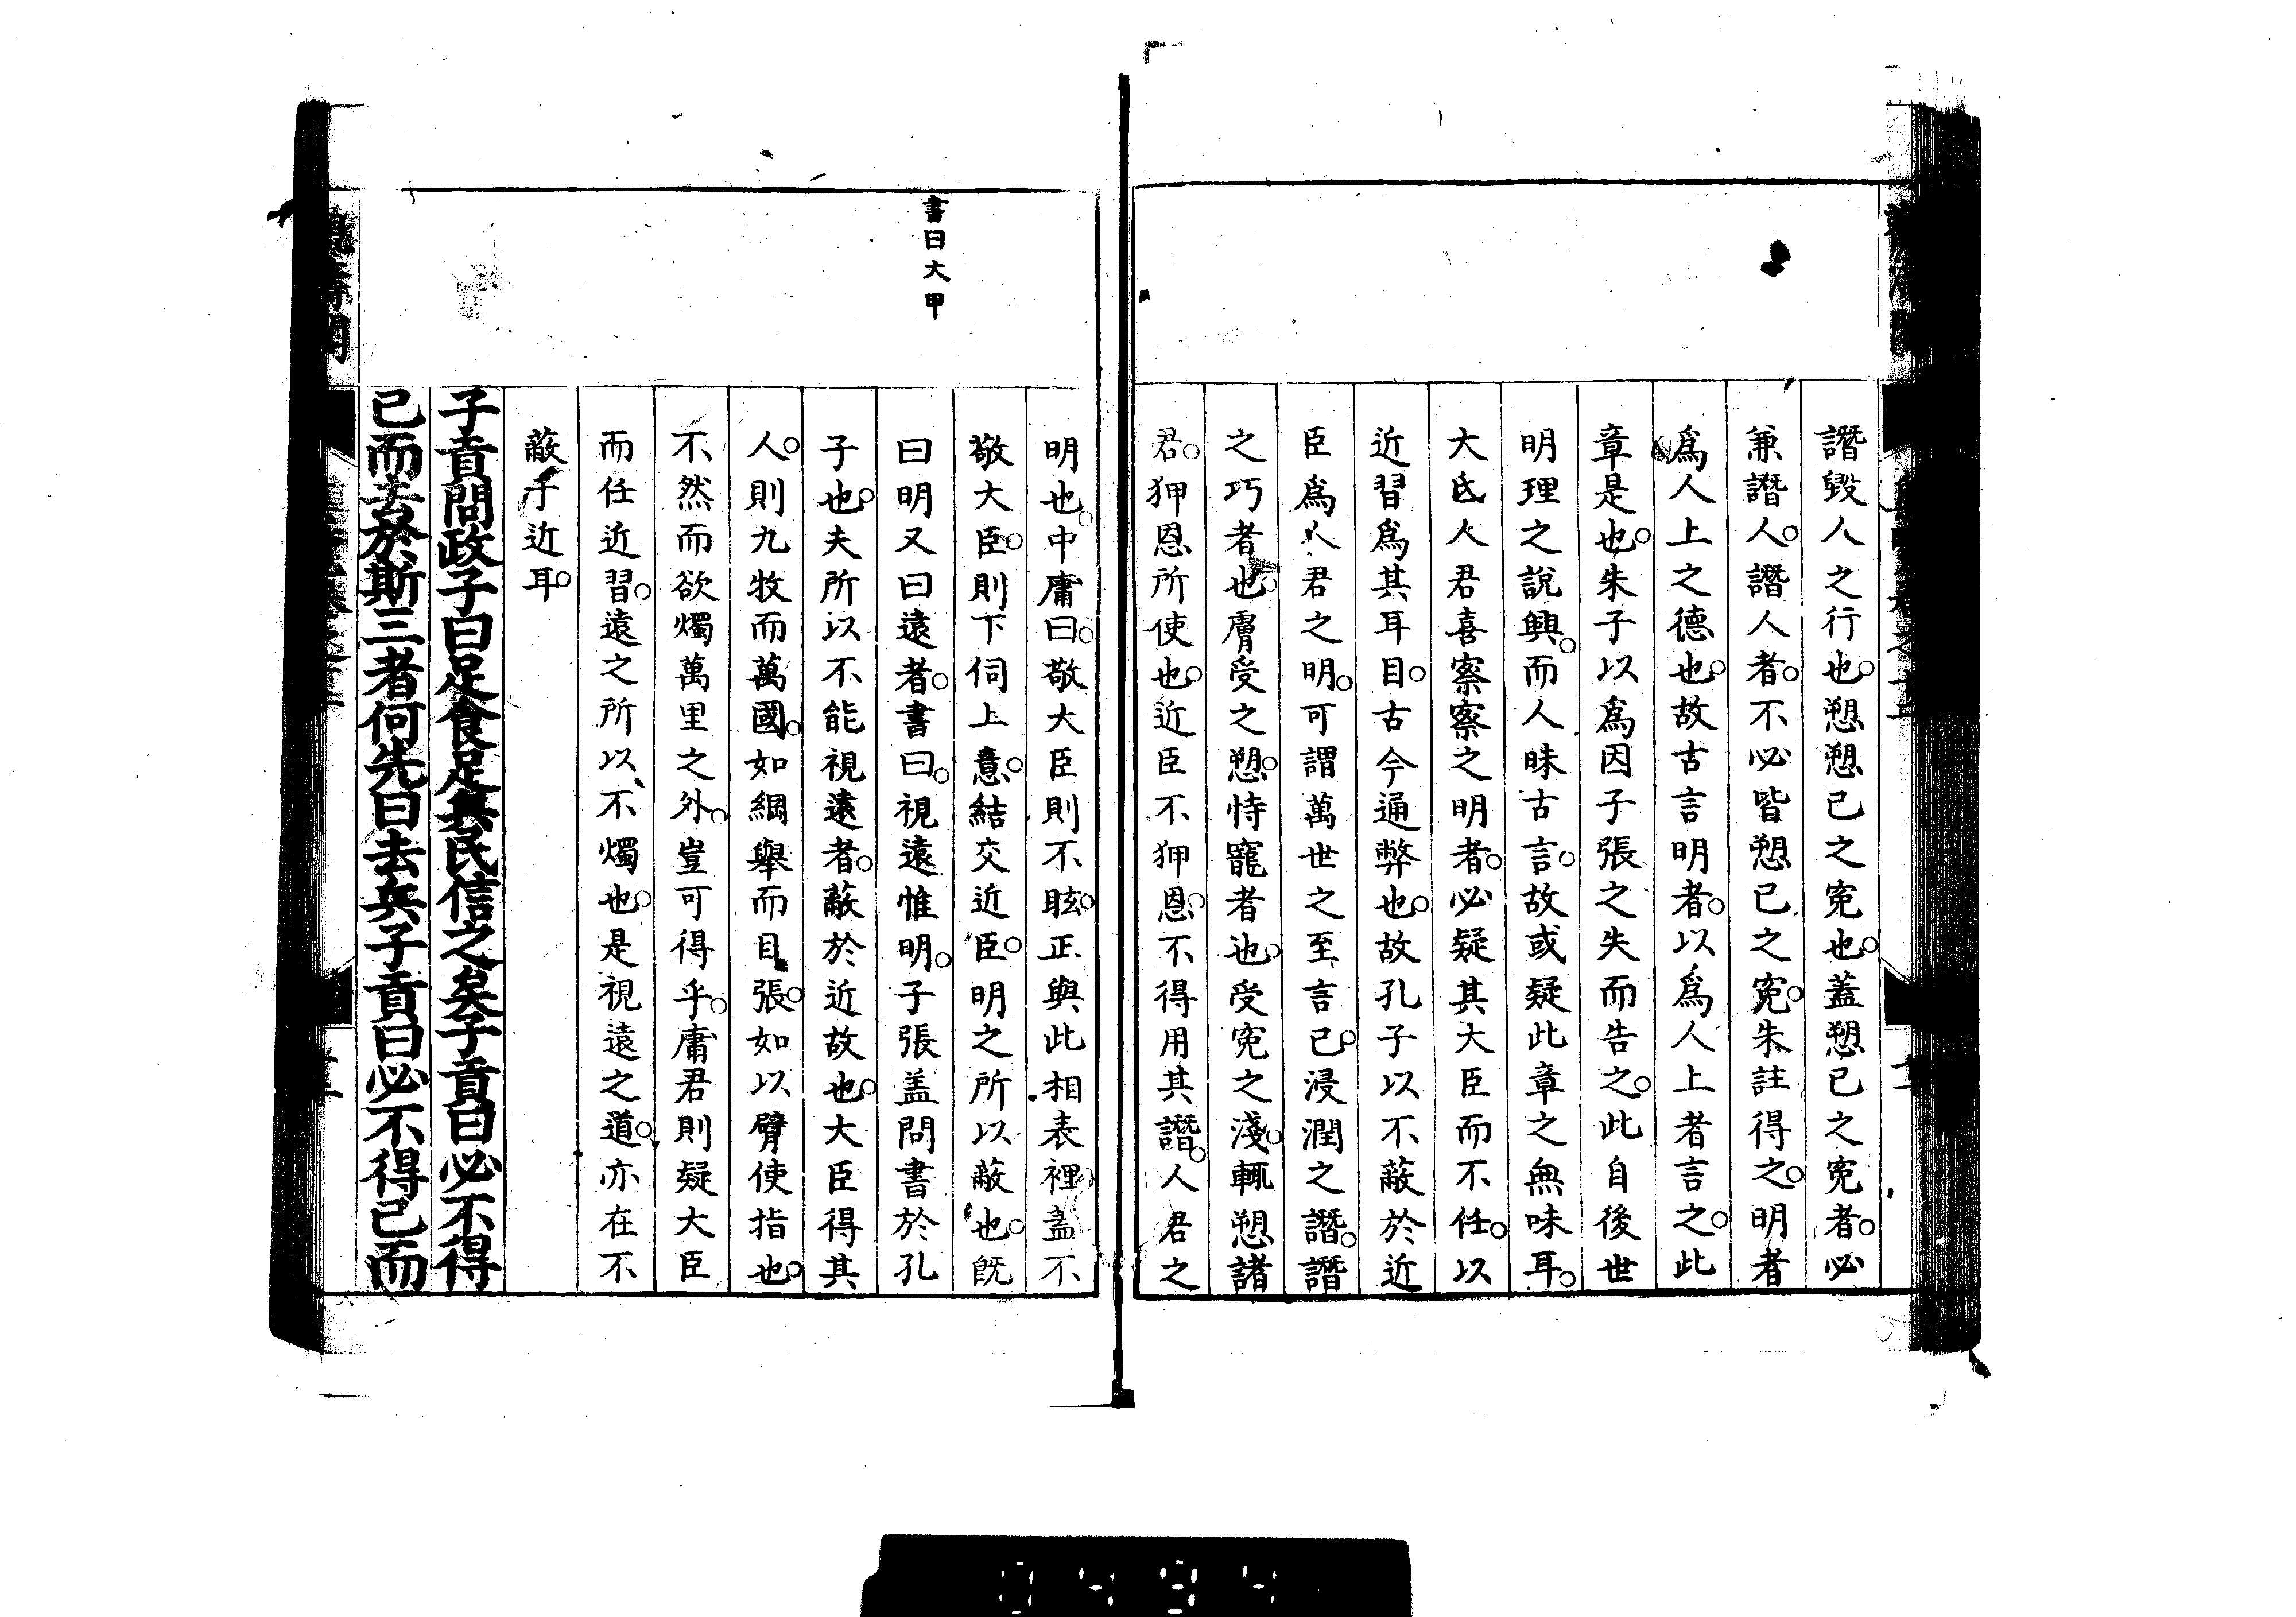 譖毀人之行也愬愬己之寃也蓋愬己之寃者必
兼譖人譖人者不必皆愬己之寃朱註得之明者
爲人上之德也故古言明者以爲人上者言之此
章是也朱子以爲因子張之失而告之此自後世
明理之說興而人昧古言故或疑此章之無味耳
大氐人君喜察察之明者必疑其大臣而不任以
近習爲其耳目古今通弊也故孔子以不蔽於近
臣爲人君之明可謂萬世之至言已浸潤之譖譖
之巧者也膚受之愬恃寵者也受寃之淺輒愬諸
君狎恩所使也近臣不狎恩不得用其譖人君之
書曰大甲
明也中庸曰敬大臣則不眩正與此相表裡蓋不
敬大臣則下伺上意結交近臣明之所以蔽也旣
曰明又曰遠者書曰視遠惟明子張盖問書於孔
子也夫所以不能視遠者蔽於近故也大臣得其
人則九牧而萬國如綱舉而目張如以臂使指也
不然而欲燭萬里之外豈可得乎庸君則疑大臣
而任近習遠之所以不燭也是視遠之道亦在不
蔽于近耳
子貢問政子曰足食足兵民信之矣子貢曰必不得
已而去於斯三者何先曰去兵子貢曰必不得已而